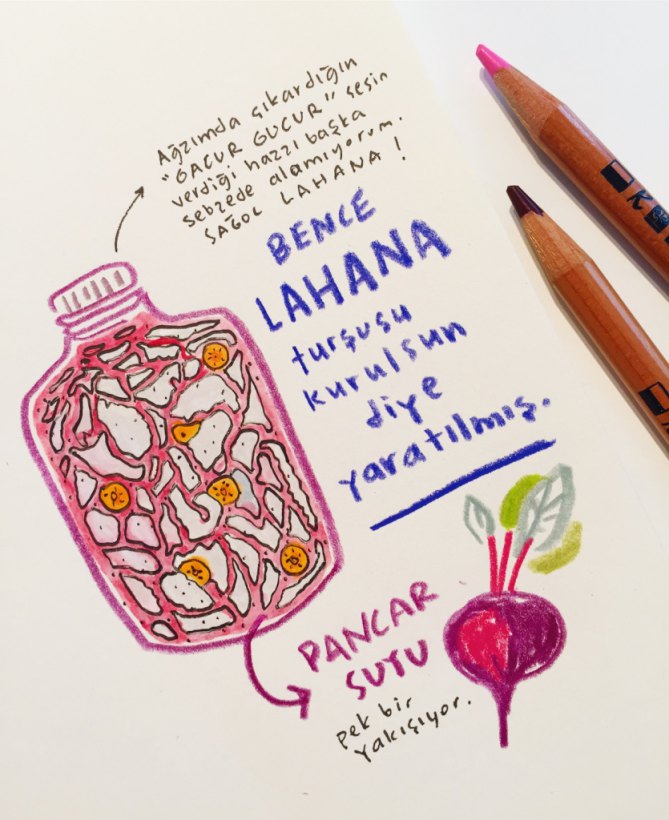 Ağzımda çıkardığın
"GACUR GUCUR" sesin
verdiği hazzı başka
sebzede alamıyorum.
SAĞOL LAHANA!
BENCE
LAHANA
turşusu
kurulsun
diye
yaratılmış.
PANCAR
SUYU
pek bir
yakışıyor.